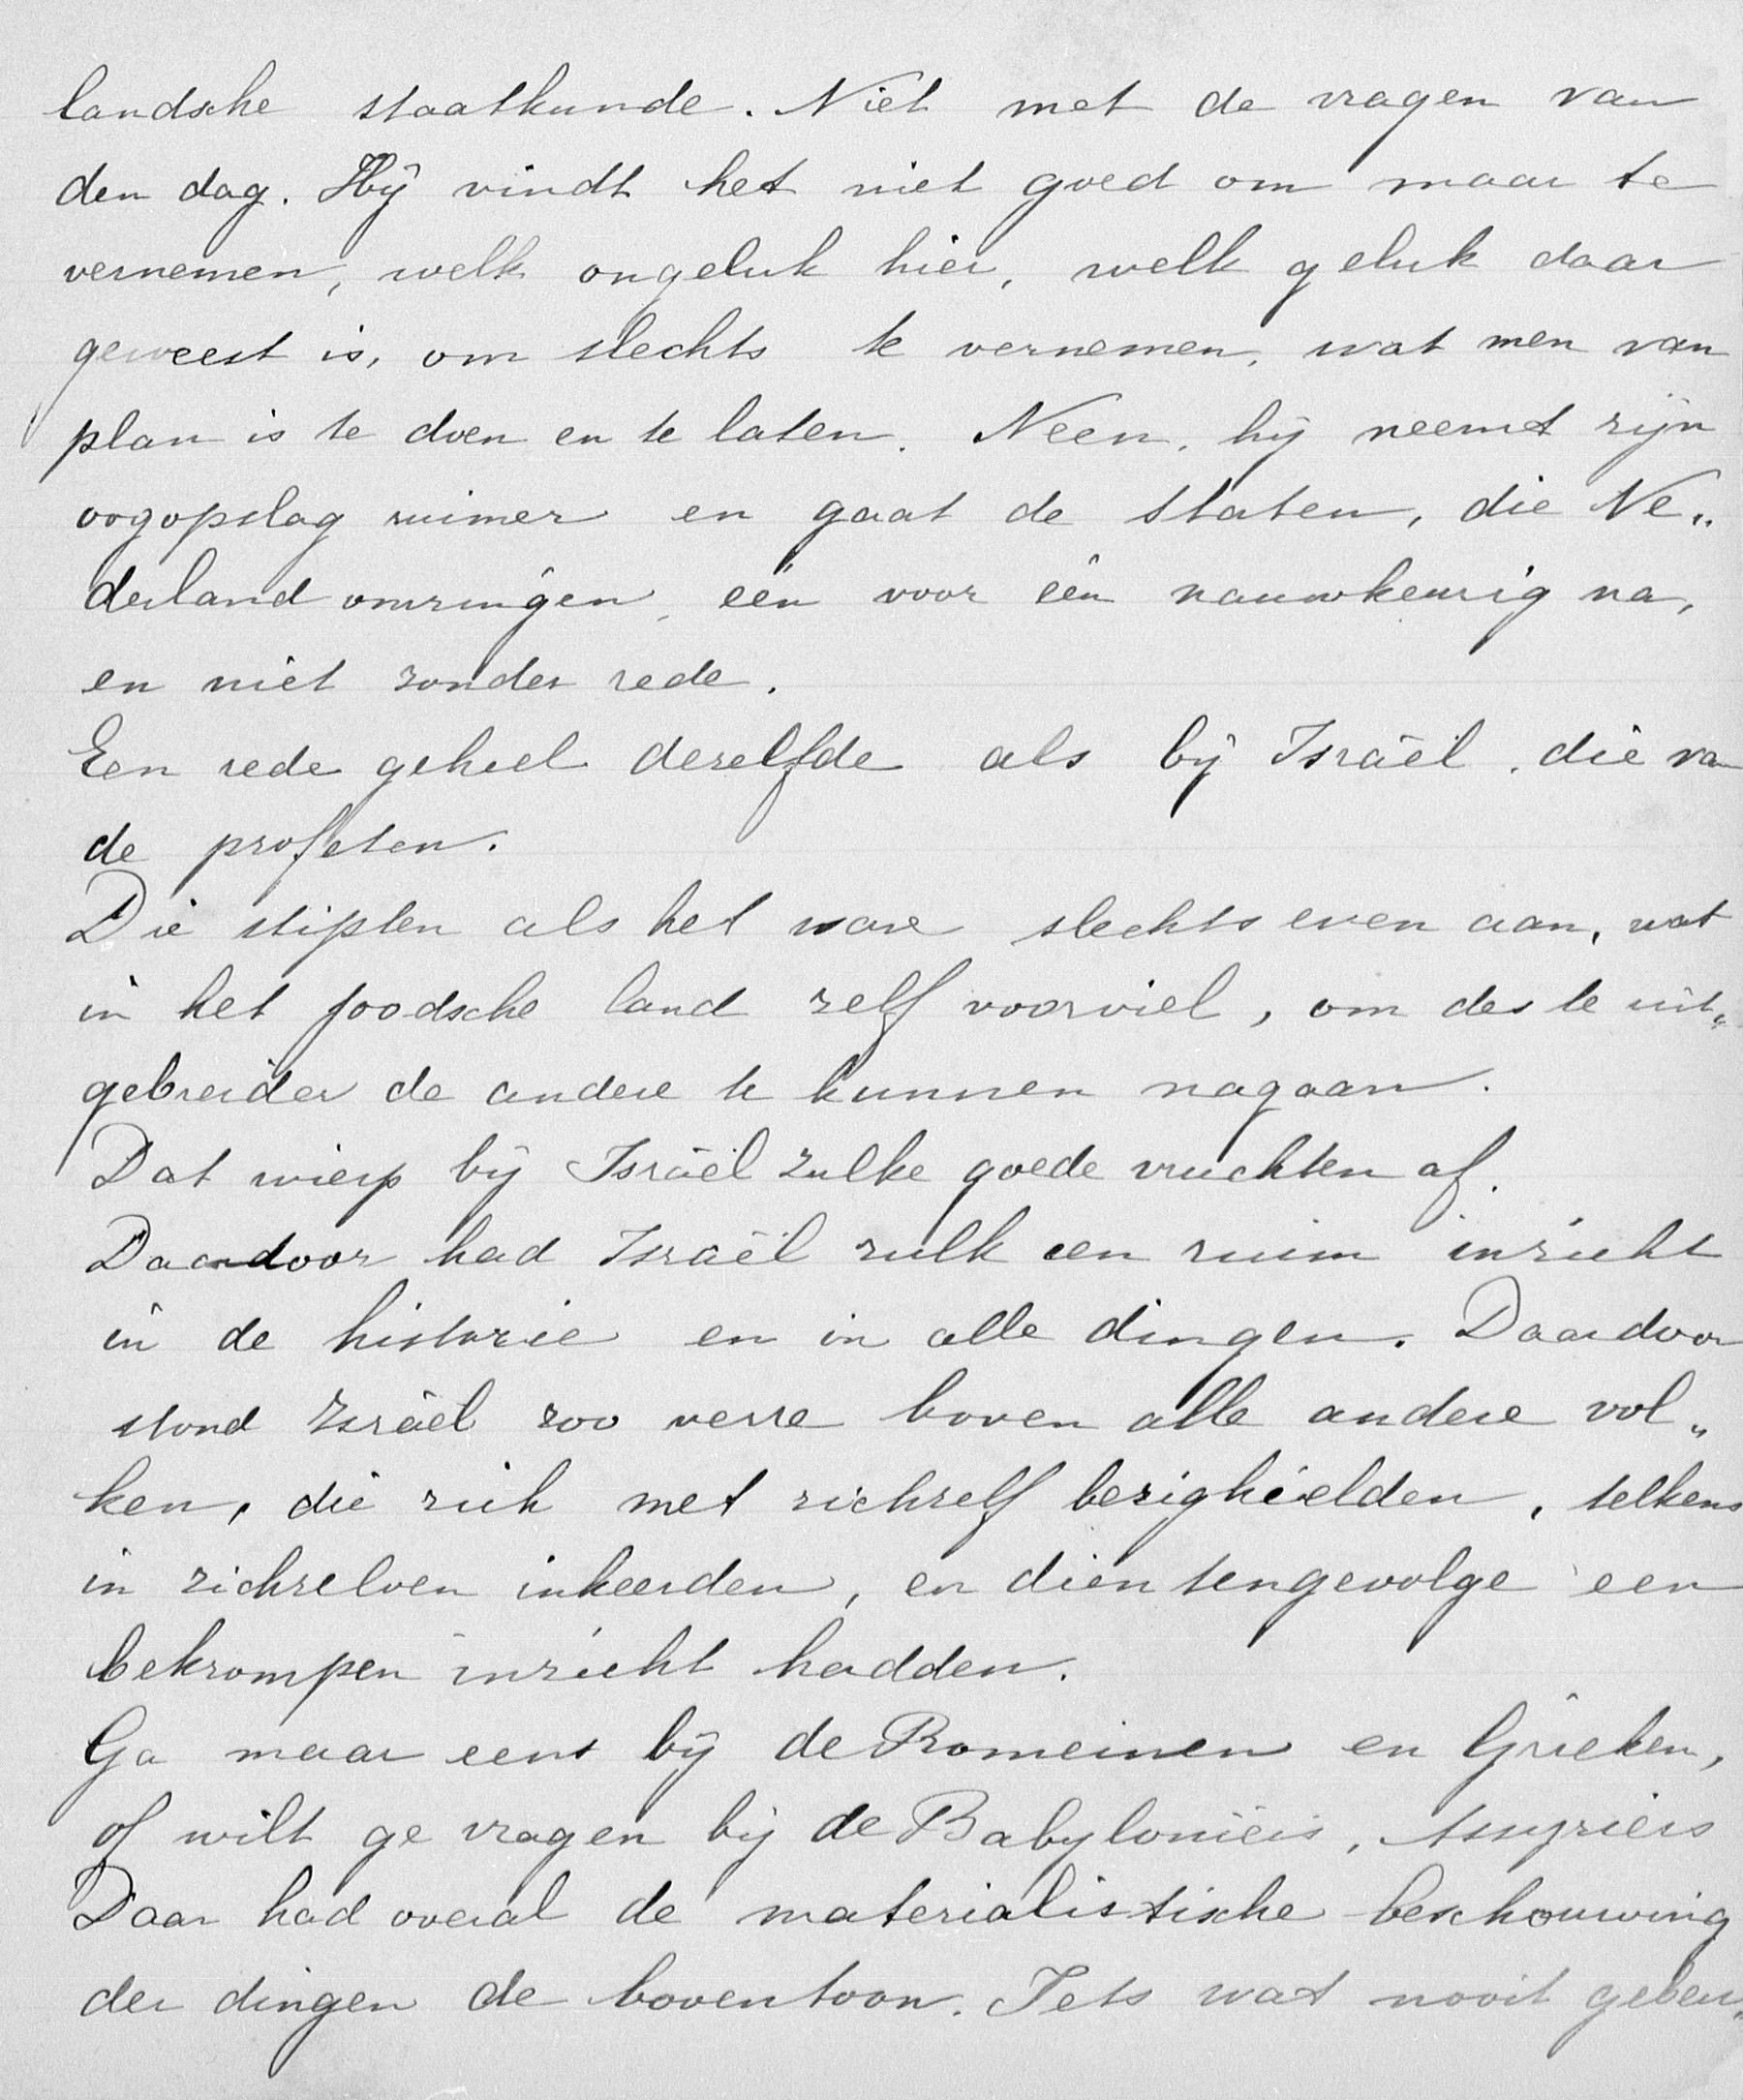 landsche staatkunde. Niet met de vragen van
den dag. Hij vindt het niet goed om maar te
vernemen, welk ongeluk hier, welk geluk daar
geweest is, om slechts te vernemen, wat men van
plan is te doen en te laten. Neen, hij neemt zijn
oogopslag ruimer en gaat de staten, die Ne„
derland omringen, één voor één nauwkeurig na,
en niet zonder rede.
Een rede geheel dezelfde als bij Israël, die van
de profeten.
Die stipten als het ware slechts even aan, wat
in het Joodsche land zelf voorviel, om des te uit„
gebreider de andere te kunnen nagaan.
Dat wierp bij Israël zulke goede vruchten af.
Daardoor had Israël zulk een ruim inzicht
in de historie en in alle dingen. Daardoor
stond Israël zoo verre boven alle andere vol„
ken, die zich met zichzelf bezighielden, telkens
in zichzelven inkeerden, en dientengevolge een
bekrompen inzicht hadden.
Ga maar eens bij de Romeinen en Grieken,
of wilt ge vragen bij de Babyloniërs, Assyriërs
Daar had overal de materialistische beschouwing
der dingen de boventoon. Iets wat nooit gebeu„